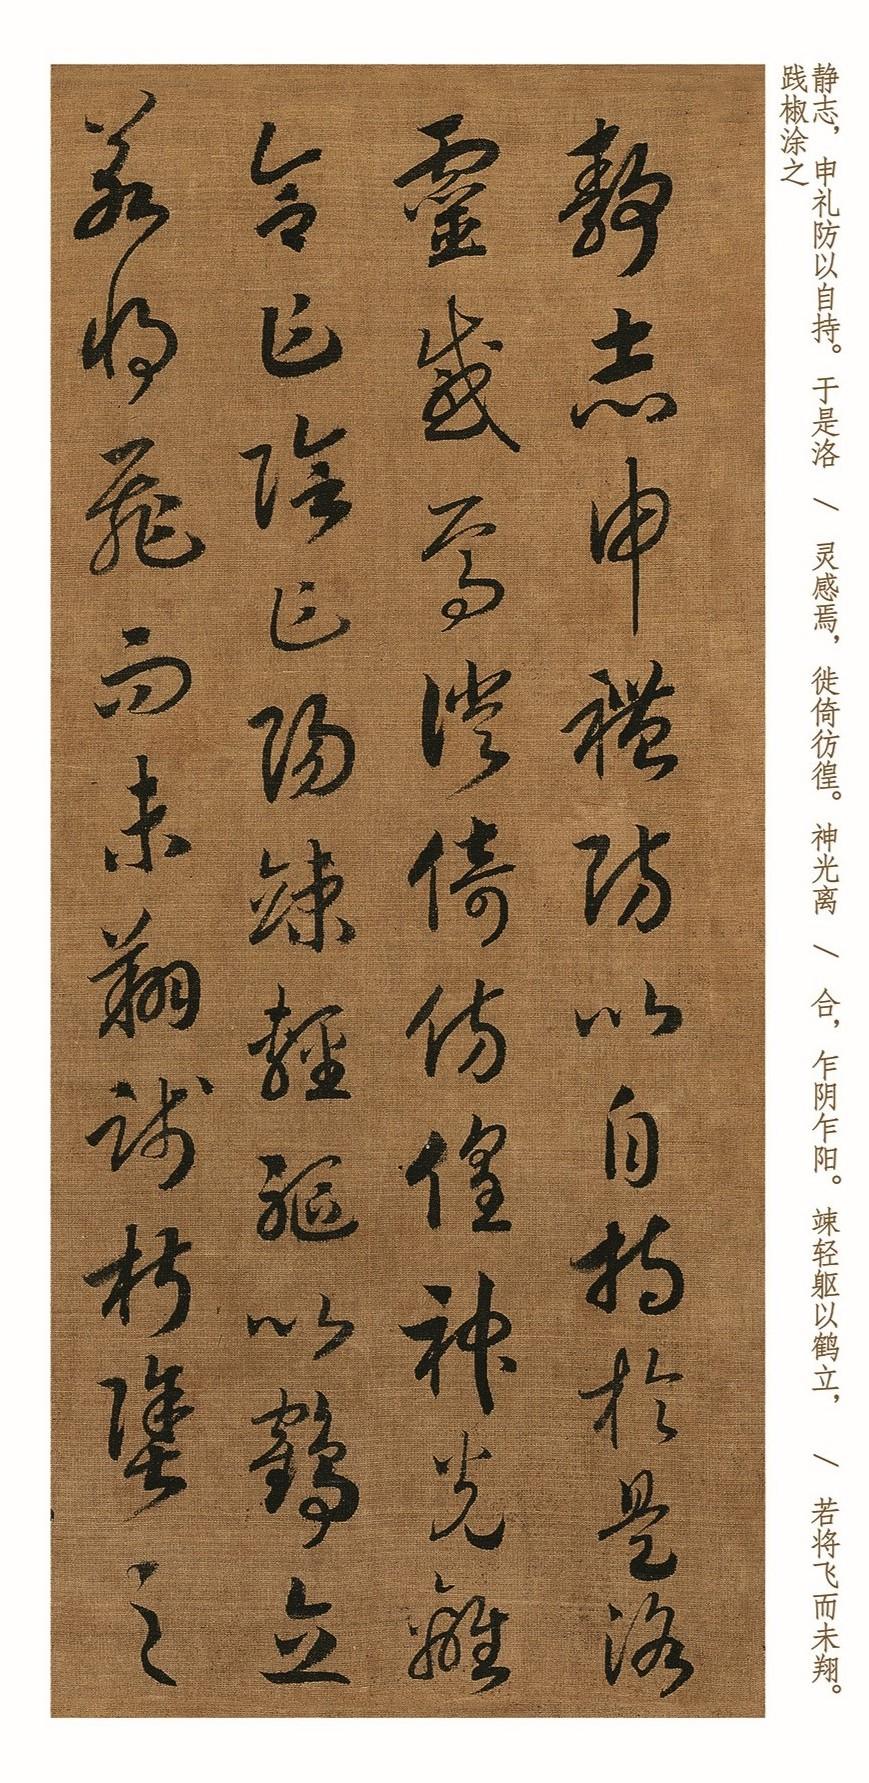 静志，申礼防以自持。于是洛 / 灵感焉，徙倚彷徨。神光离 / 合，乍阴乍阳。竦轻躯以鹤立， / 若将飞而未翔。
践椒涂之
靜志申禮防以自持於是洛
靈感焉徙倚彷徨神光離
合乍陰乍陽竦輕軀以鶴立
若將飛而未翔踐椒塗之